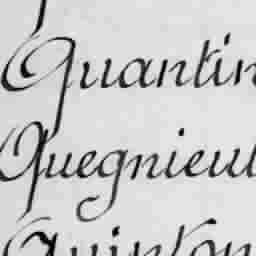 Quantin
Quegnieul
Quinton